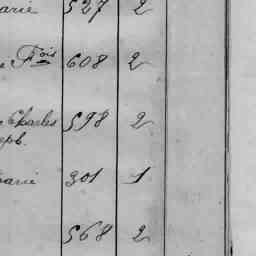 arie 527 2
Fois 608 2
Charles 598 2
eph.
arie 301 1
568 2